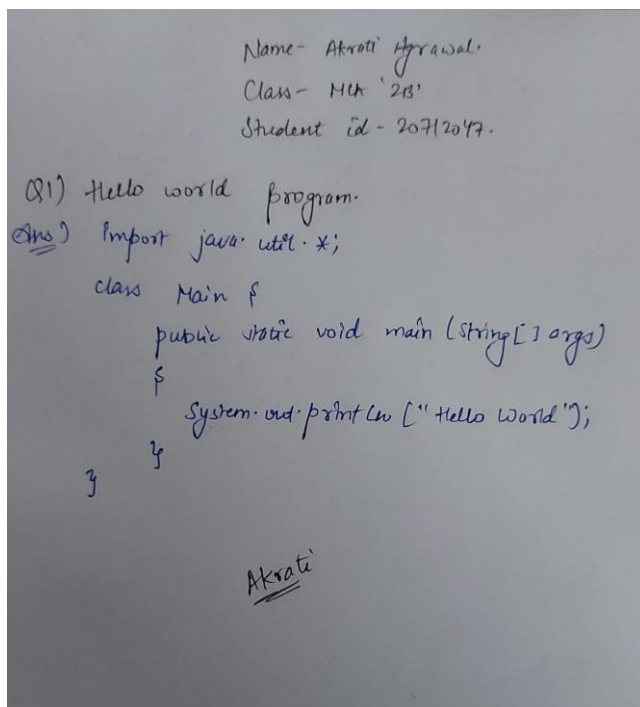 Name- Akrati Agrawal.
Class- MCA '2B'
Student id - 20712047.
Q1) Hello world program.
Ans) import java.util.*;
class Main {
public static void main (String[] args)
{
System.out.println ("Hello World");
}
}
Akrati